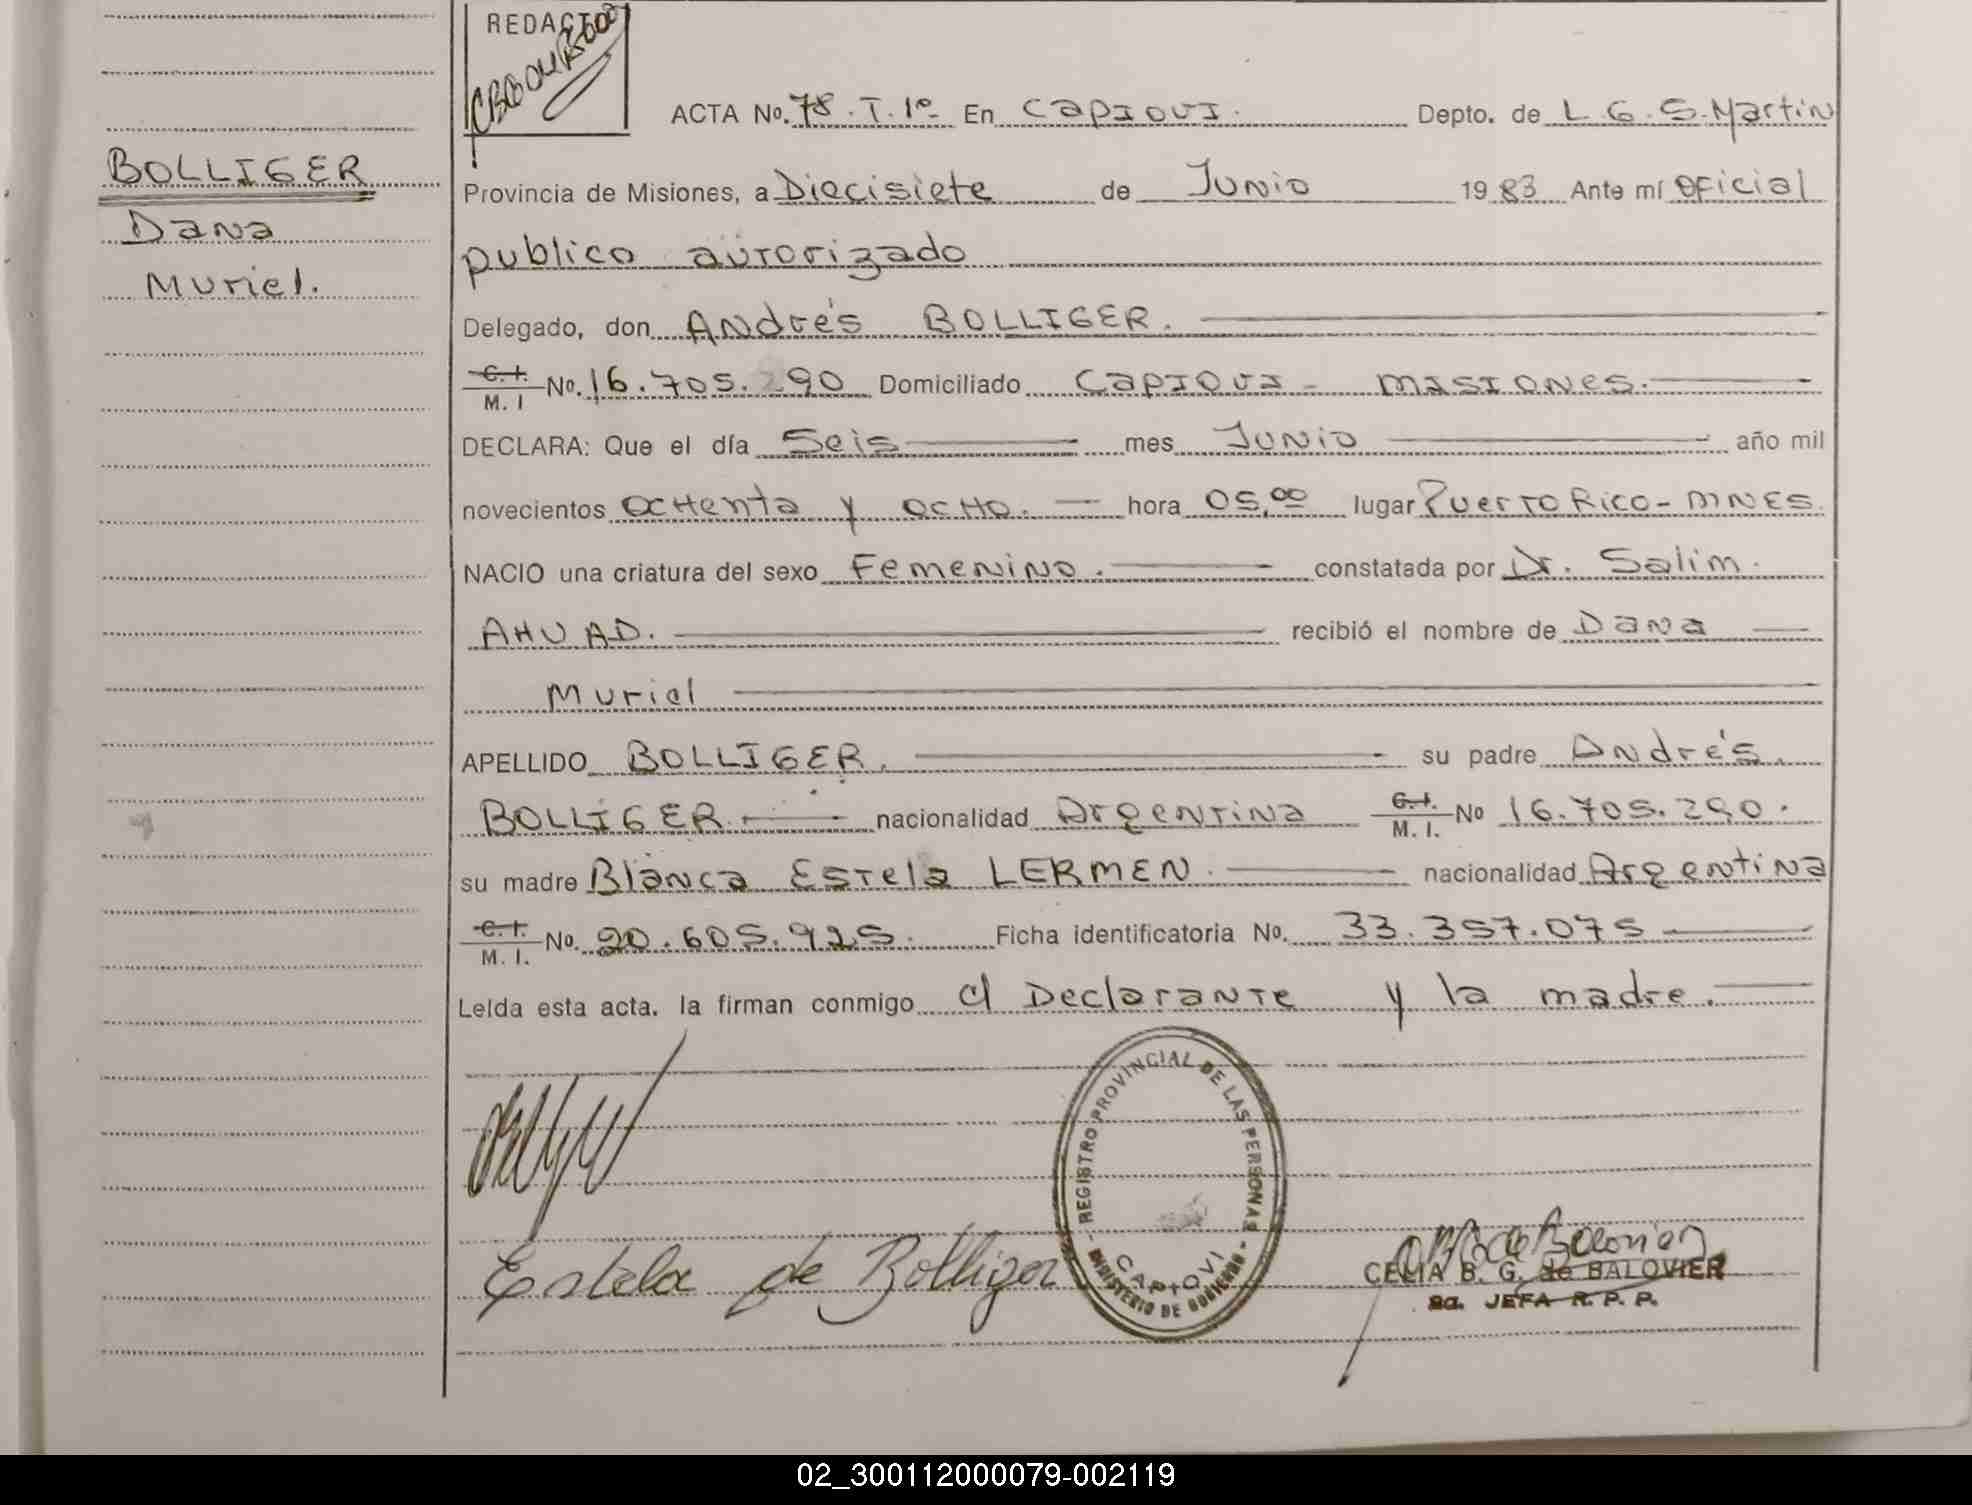 REDACTO
ACTA No. 78. T. 1º En CAPIOVI. Depto. de L. G. S. Martin
BOLLIGER
Dana
Muriel.
Provincia de Misiones, a Diecisiete de Junio 1983 Ante mí oficial
publico autorizado
Delegado, don Andrés BOLLIGER.
C. I. / M. I No. 16.705.290 Domiciliado CAPIOVI - MISIONES.
DECLARA: Que el día Seis mes Junio año mil
novecientos ocHenta y ocHo. hora 05,00 lugar Puerto Rico - MNES.
NACIO una criatura del sexo Femenino. constatada por Dr. Salim.
AHUAD. recibió el nombre de Dana
Muriel
APELLIDO BOLLIGER. su padre Andrés.
BOLLIGER. nacionalidad Argentina C. I. / M. I. No 16.705.290.
su madre Blanca Estela LERMEN. nacionalidad Argentina
C. I. / M. I. No. 20.605.925. Ficha identificatoria No. 33.357.075
Leída esta acta. la firman conmigo el Declarante y la madre.
REGISTRO PROVINCIAL DE LAS PERSONAS
CAPIOVI
MINISTERIO DE GOBIERNO
Estela de Bolliger
CELIA B. G. de BALOVIER
2a. JEFA R. P. P.
02_300112000079-002119